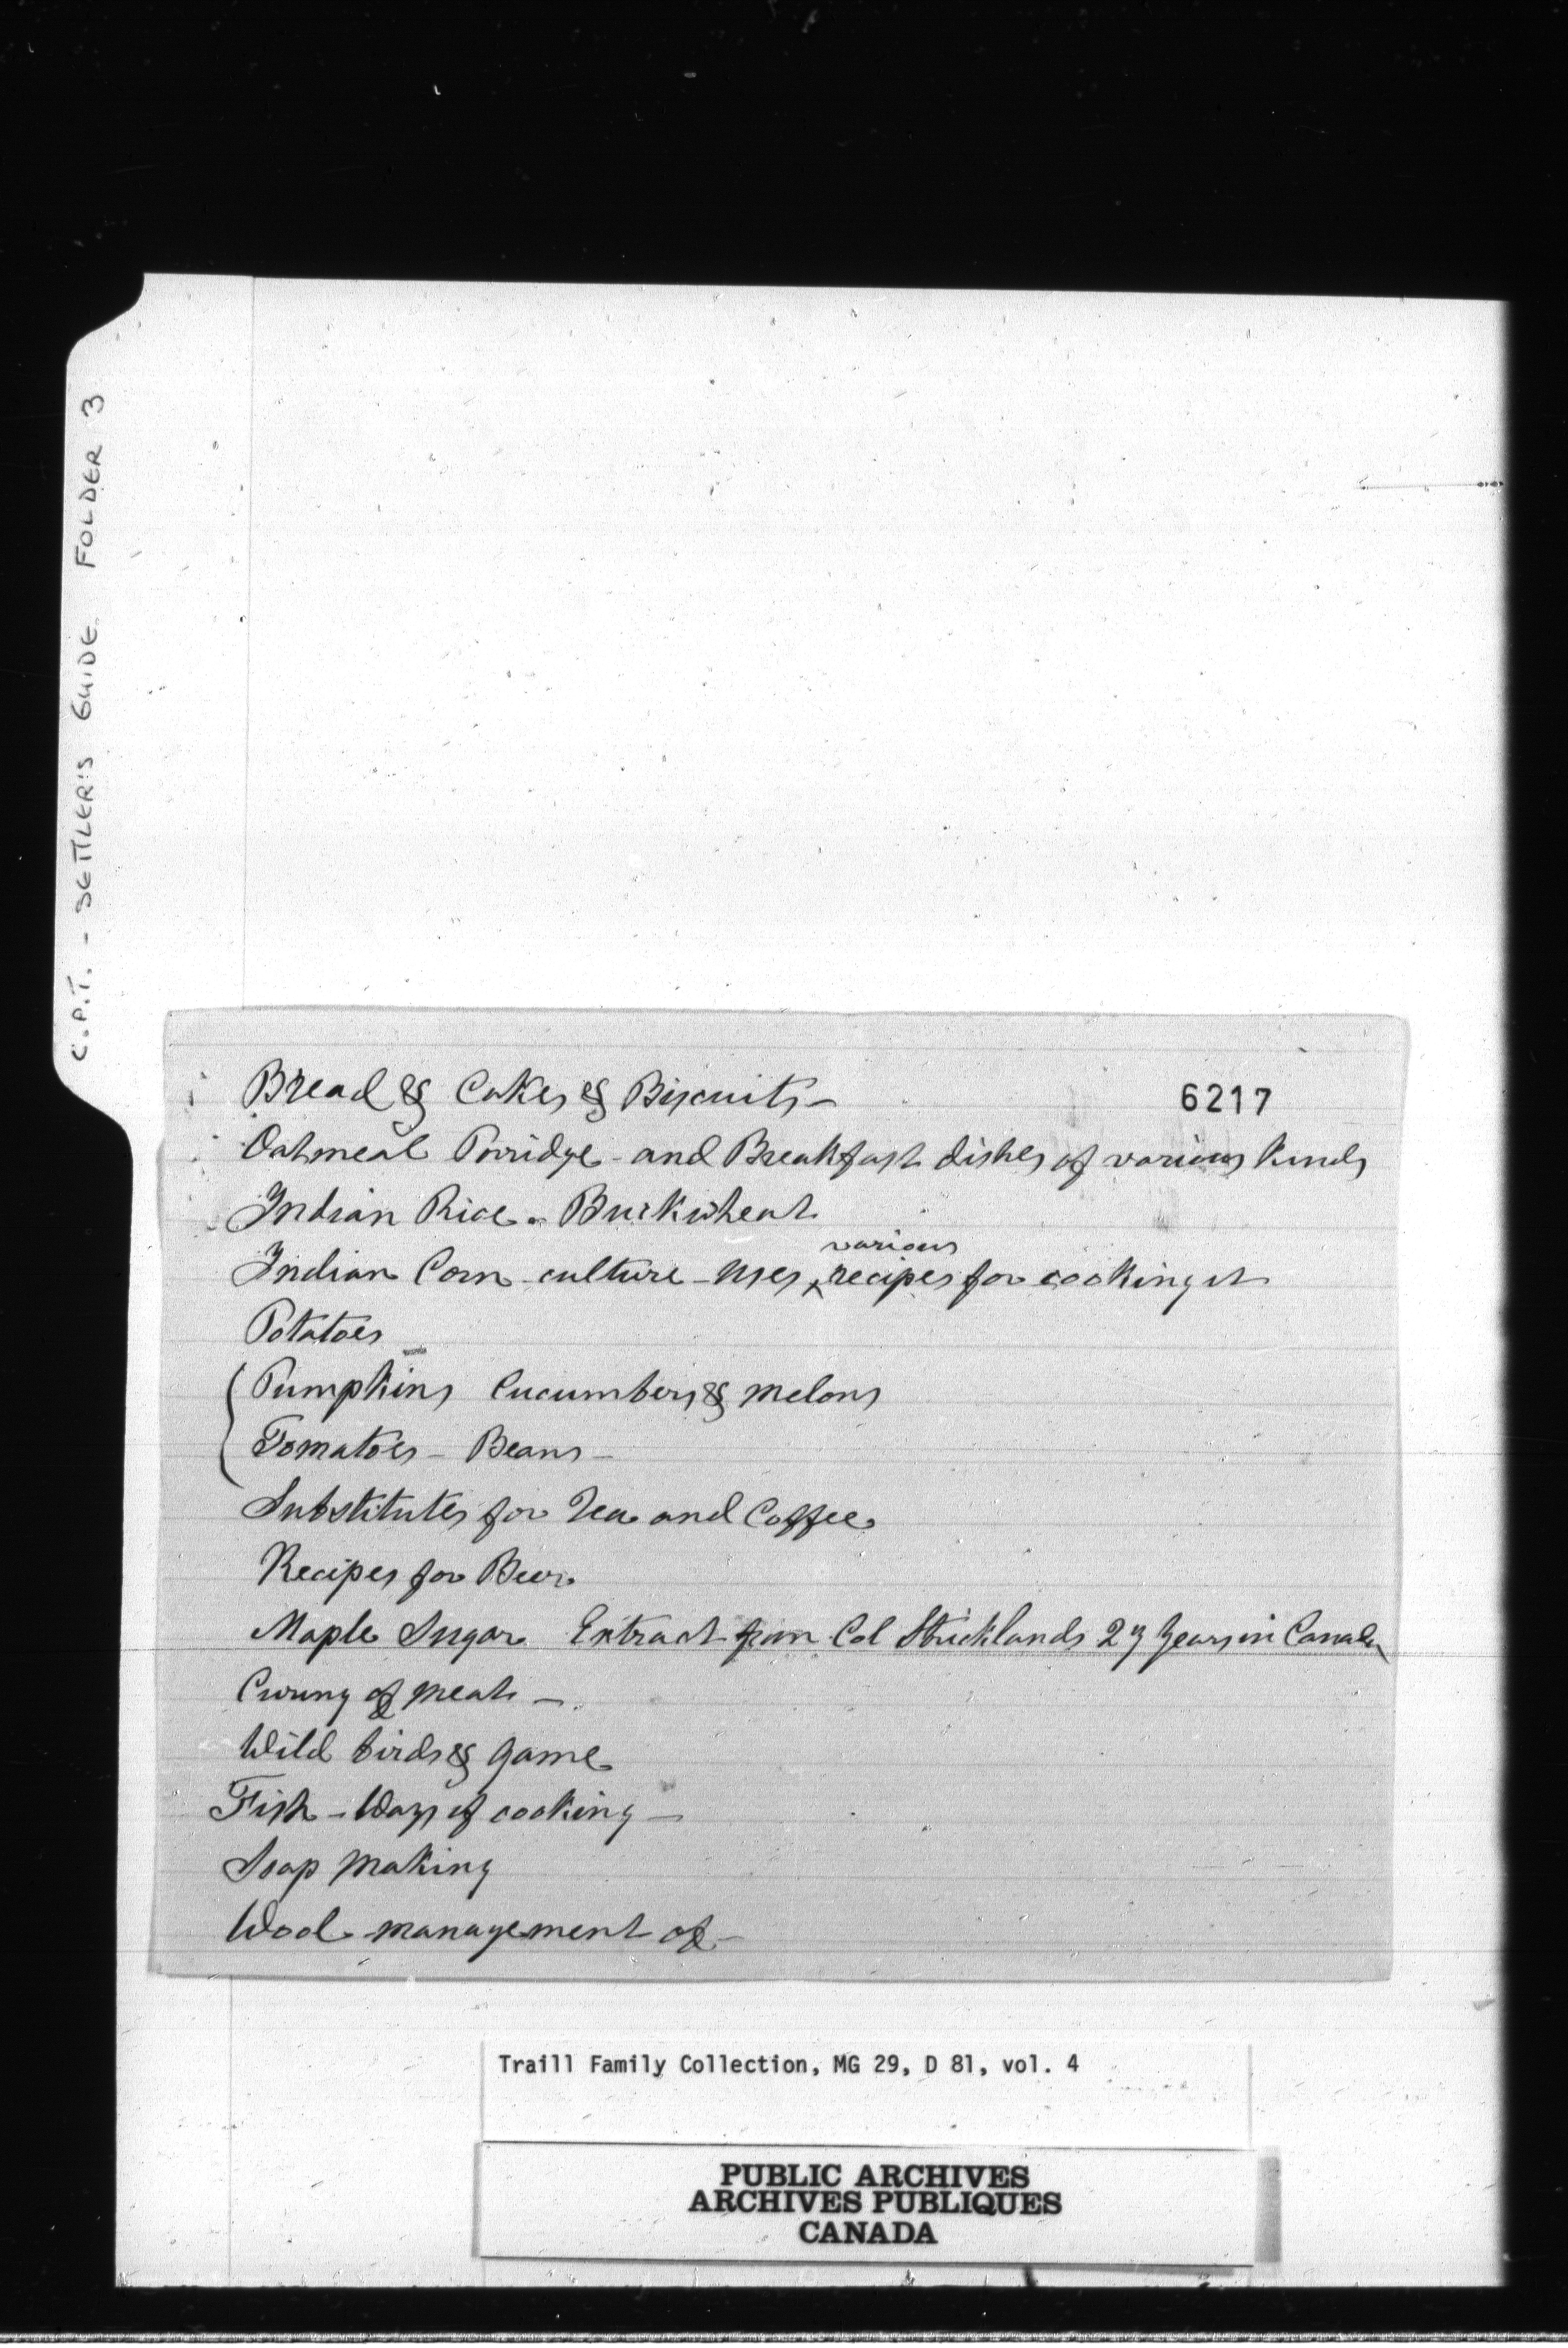 C.P.T. - SETTLER'S GUIDE FOLDER 3
6217
Bread & Cakes & Biscuits -
Oatmeal Porridge - and Breakfast dishes of various kinds
Indian Rice - Buckwheat
Indian Corn - culture - uses, various recipes for cooking it
Potatoes
Pumpkins Cucumbers & melons
Tomatoes - Beans -
Substitutes for Tea and Coffee
Recipes for Beer
Maple Sugar Extract from Col Stricklands 27 Years in Canada
Curing of meats -
Wild birds & game
Fish - Ways of cooking -
Soap making
Wool - management of -
Traill Family Collection, MG 29, D 81, vol. 4
PUBLIC ARCHIVES
ARCHIVES PUBLIQUES
CANADA